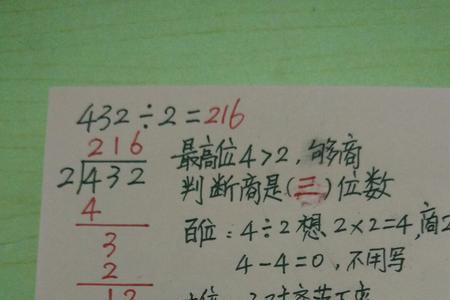 432÷2=216
216
2)432
4
3
2
12
最高位4>2,够商
判断商是(三)位数
百位:4÷2想2×2=4,商2
4-4=0,不用写